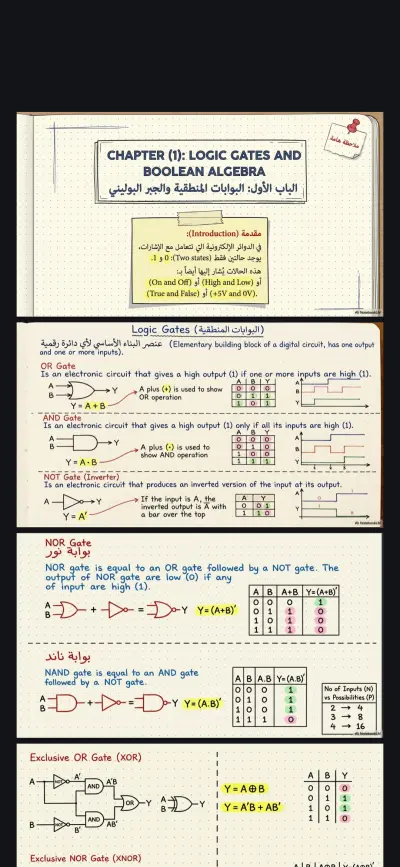 ملاحظة هامة
CHAPTER (1): LOGIC GATES AND
BOOLEAN ALGEBRA
الباب الأول: البوابات المنطقية والجبر البوليني
مقدمة (Introduction):
في الدوائر الإلكترونية التي تتعامل مع الإشارات،
يوجد حالتين فقط (Two states): 0 و 1.
هذه الحالات يُشار إليها أيضاً بـ:
(High and Low) أو (On and Off)
أو (+5V and 0V) أو (True and False).
NotebookLM
Logic Gates (البوابات المنطقية)
عنصر البناء الأساسي لأي دائرة رقمية (Elementary building block of a digital circuit, has one output
and one or more inputs).
OR Gate
Is an electronic circuit that gives a high output (1) if one or more inputs are high (1).
A
B
Y
Y = A + B
A plus (+) is used to show
OR operation
A B Y
0 0 0
0 1 1
1 0 1
A
B
Y
AND Gate
Is an electronic circuit that gives a high output (1) only if all its inputs are high (1).
A
B
Y
Y = A • B
A plus (•) is used to
show AND operation
A B Y
0 0 0
0 1 0
1 0 0
1 1 1
A
B
Y
NOT Gate (Inverter)
Is an electronic circuit that produces an inverted version of the input at its output.
A
Y
Y = A'
If the input is A, the
inverted output is A̅ with
a bar over the top
A Y
0 0 1
1 1 0
A
Y
NotebookLM
NOR Gate
بوابة نور
NOR gate is equal to an OR gate followed by a NOT gate. The
output of NOR gate are low (0) if any
of input are high (1).
A
B
+ = Y Y=(A+B)'
A B A+B Y=(A+B)'
0 0 0 1
0 1 1 0
1 0 1 0
1 1 1 0
بوابة ناند
NAND gate is equal to an AND gate
followed by a NOT gate.
A
B
+ = Y Y=(A.B)'
A B A.B Y=(A.B)'
0 0 0 1
0 1 0 1
1 0 0 1
1 1 1 0
No of Inputs (N)
vs Possibilities (P)
2 → 4
3 → 8
4 → 16
NotebookLM
Exclusive OR Gate (XOR)
A
NOT
A'
AND
A'B
OR
Y
B
NOT
B'
AND
AB'
A
B
Y
Y = A⊕B
Y = A'B + AB'
A B Y
0 0 0
0 1 1
1 0 1
1 1 0
Exclusive NOR Gate (XNOR)